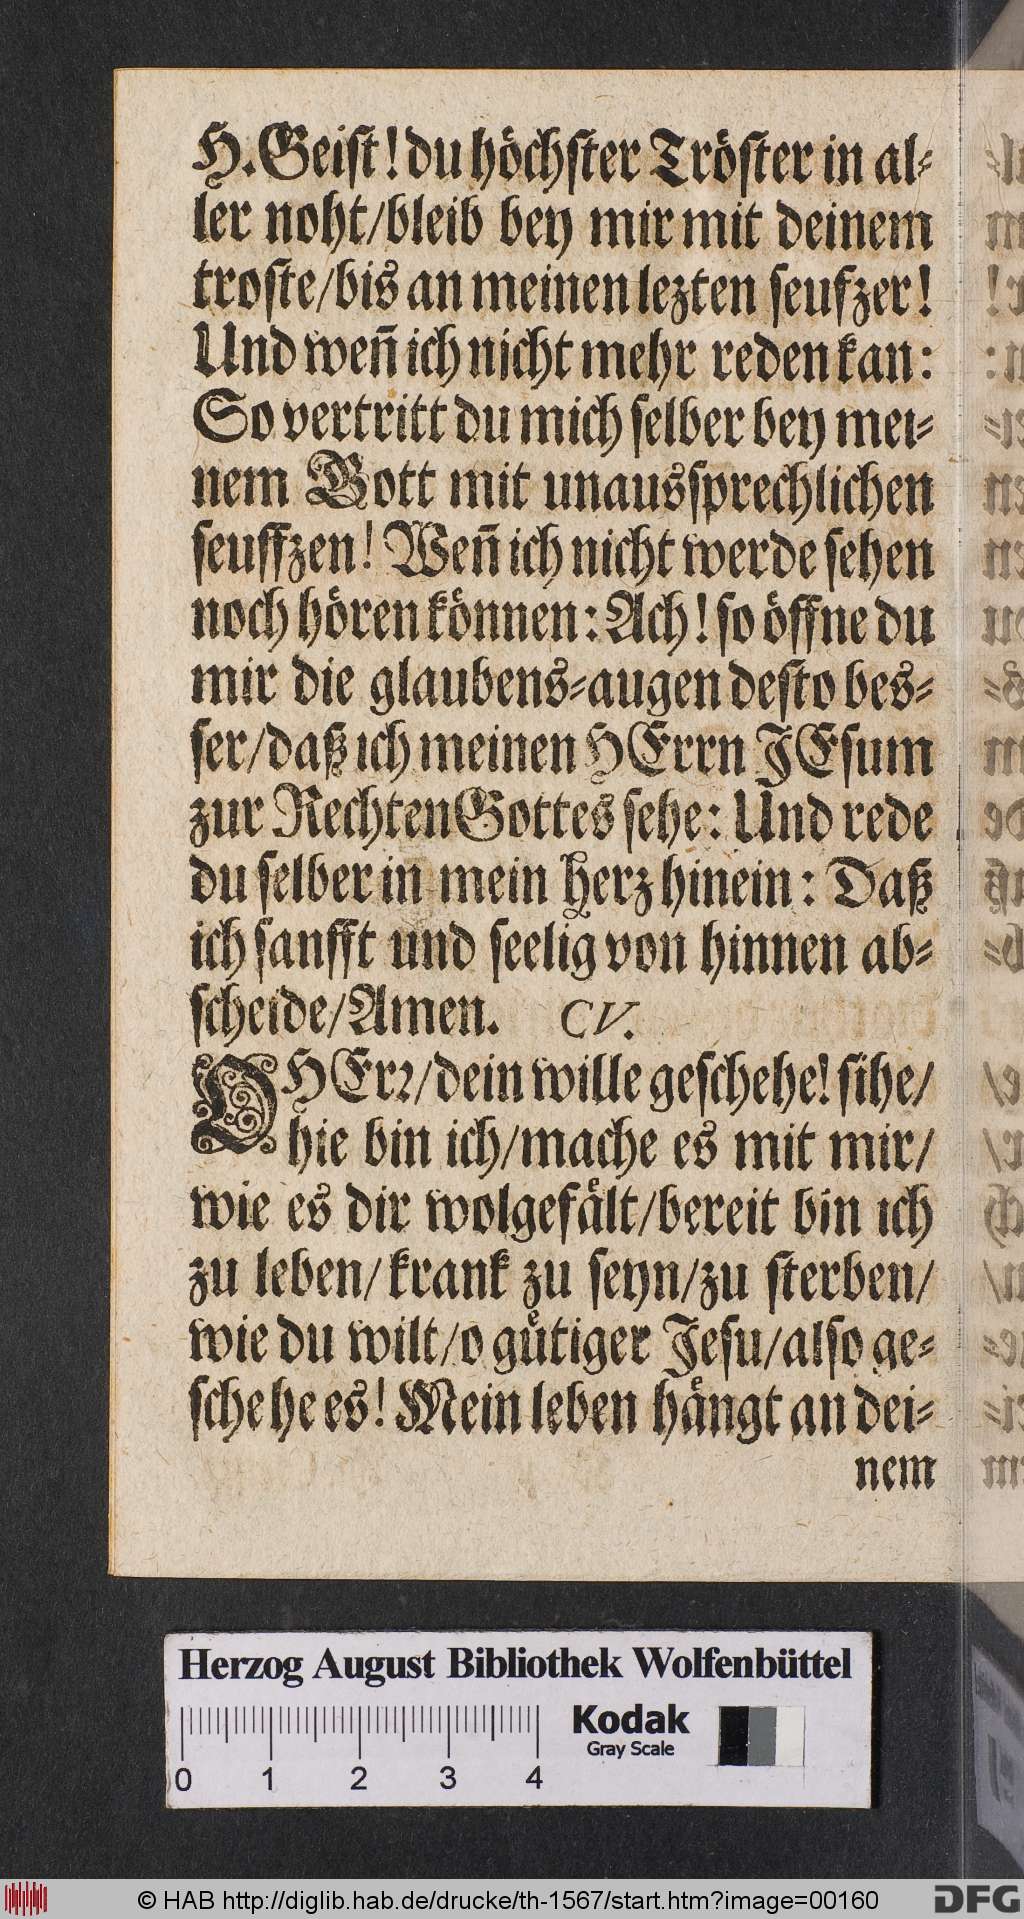 H. Geist! du höchster Tröster in al-
ler noht/bleib bey mir mit deinem
troste/bis an meinen lezten seufzer!
Und weñ ich nicht mehr reden kan:
So vertritt du mich selber bey mei-
nem Gott mit unaussprechlichen
seuffzen! Weñ ich nicht werde sehen
noch hören können: Ach! so öffne du
mir die glaubens-augen desto bes-
ser/daß ich meinen HErrn JEsum
zur Rechten Gottes sehe: Und rede
du selber in mein herz hinein: Daß
ich sanfft und seelig von hinnen ab-
scheide/Amen. CV.
O HErr/dein wille geschehe! sihe/
hie bin ich/mache es mit mir/
wie es dir wolgefält/bereit bin ich
zu leben/krank zu seyn/zu sterben/
wie du wilt/o gütiger Jesu/also ge-
schehe es! Mein leben hängt an dei-
nem
Herzog August Bibliothek Wolfenbüttel
Kodak
Gray Scale
0 1 2 3 4
© HAB http://diglib.hab.de/drucke/th-1567/start.htm?image=00160
DFG